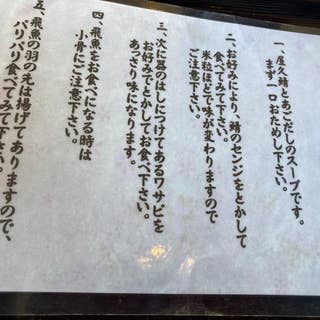 一、屋久鯖とあごだしのスープです。
まず一口おためし下さい。
二、お好みにより、鯖のセンジをとかして
食べてみて下さい。
米粒ほどで味が変わりますので
ご注意下さい。
三、次に皿のはしにつけてあるワサビを
お好みでとかしてお食べ下さい。
あっさり味になります。
四、飛魚をお食べになる時は
小骨にご注意下さい。
五、飛魚の羽の元は揚げてありますので、
バリバリ食べてみて下さい。